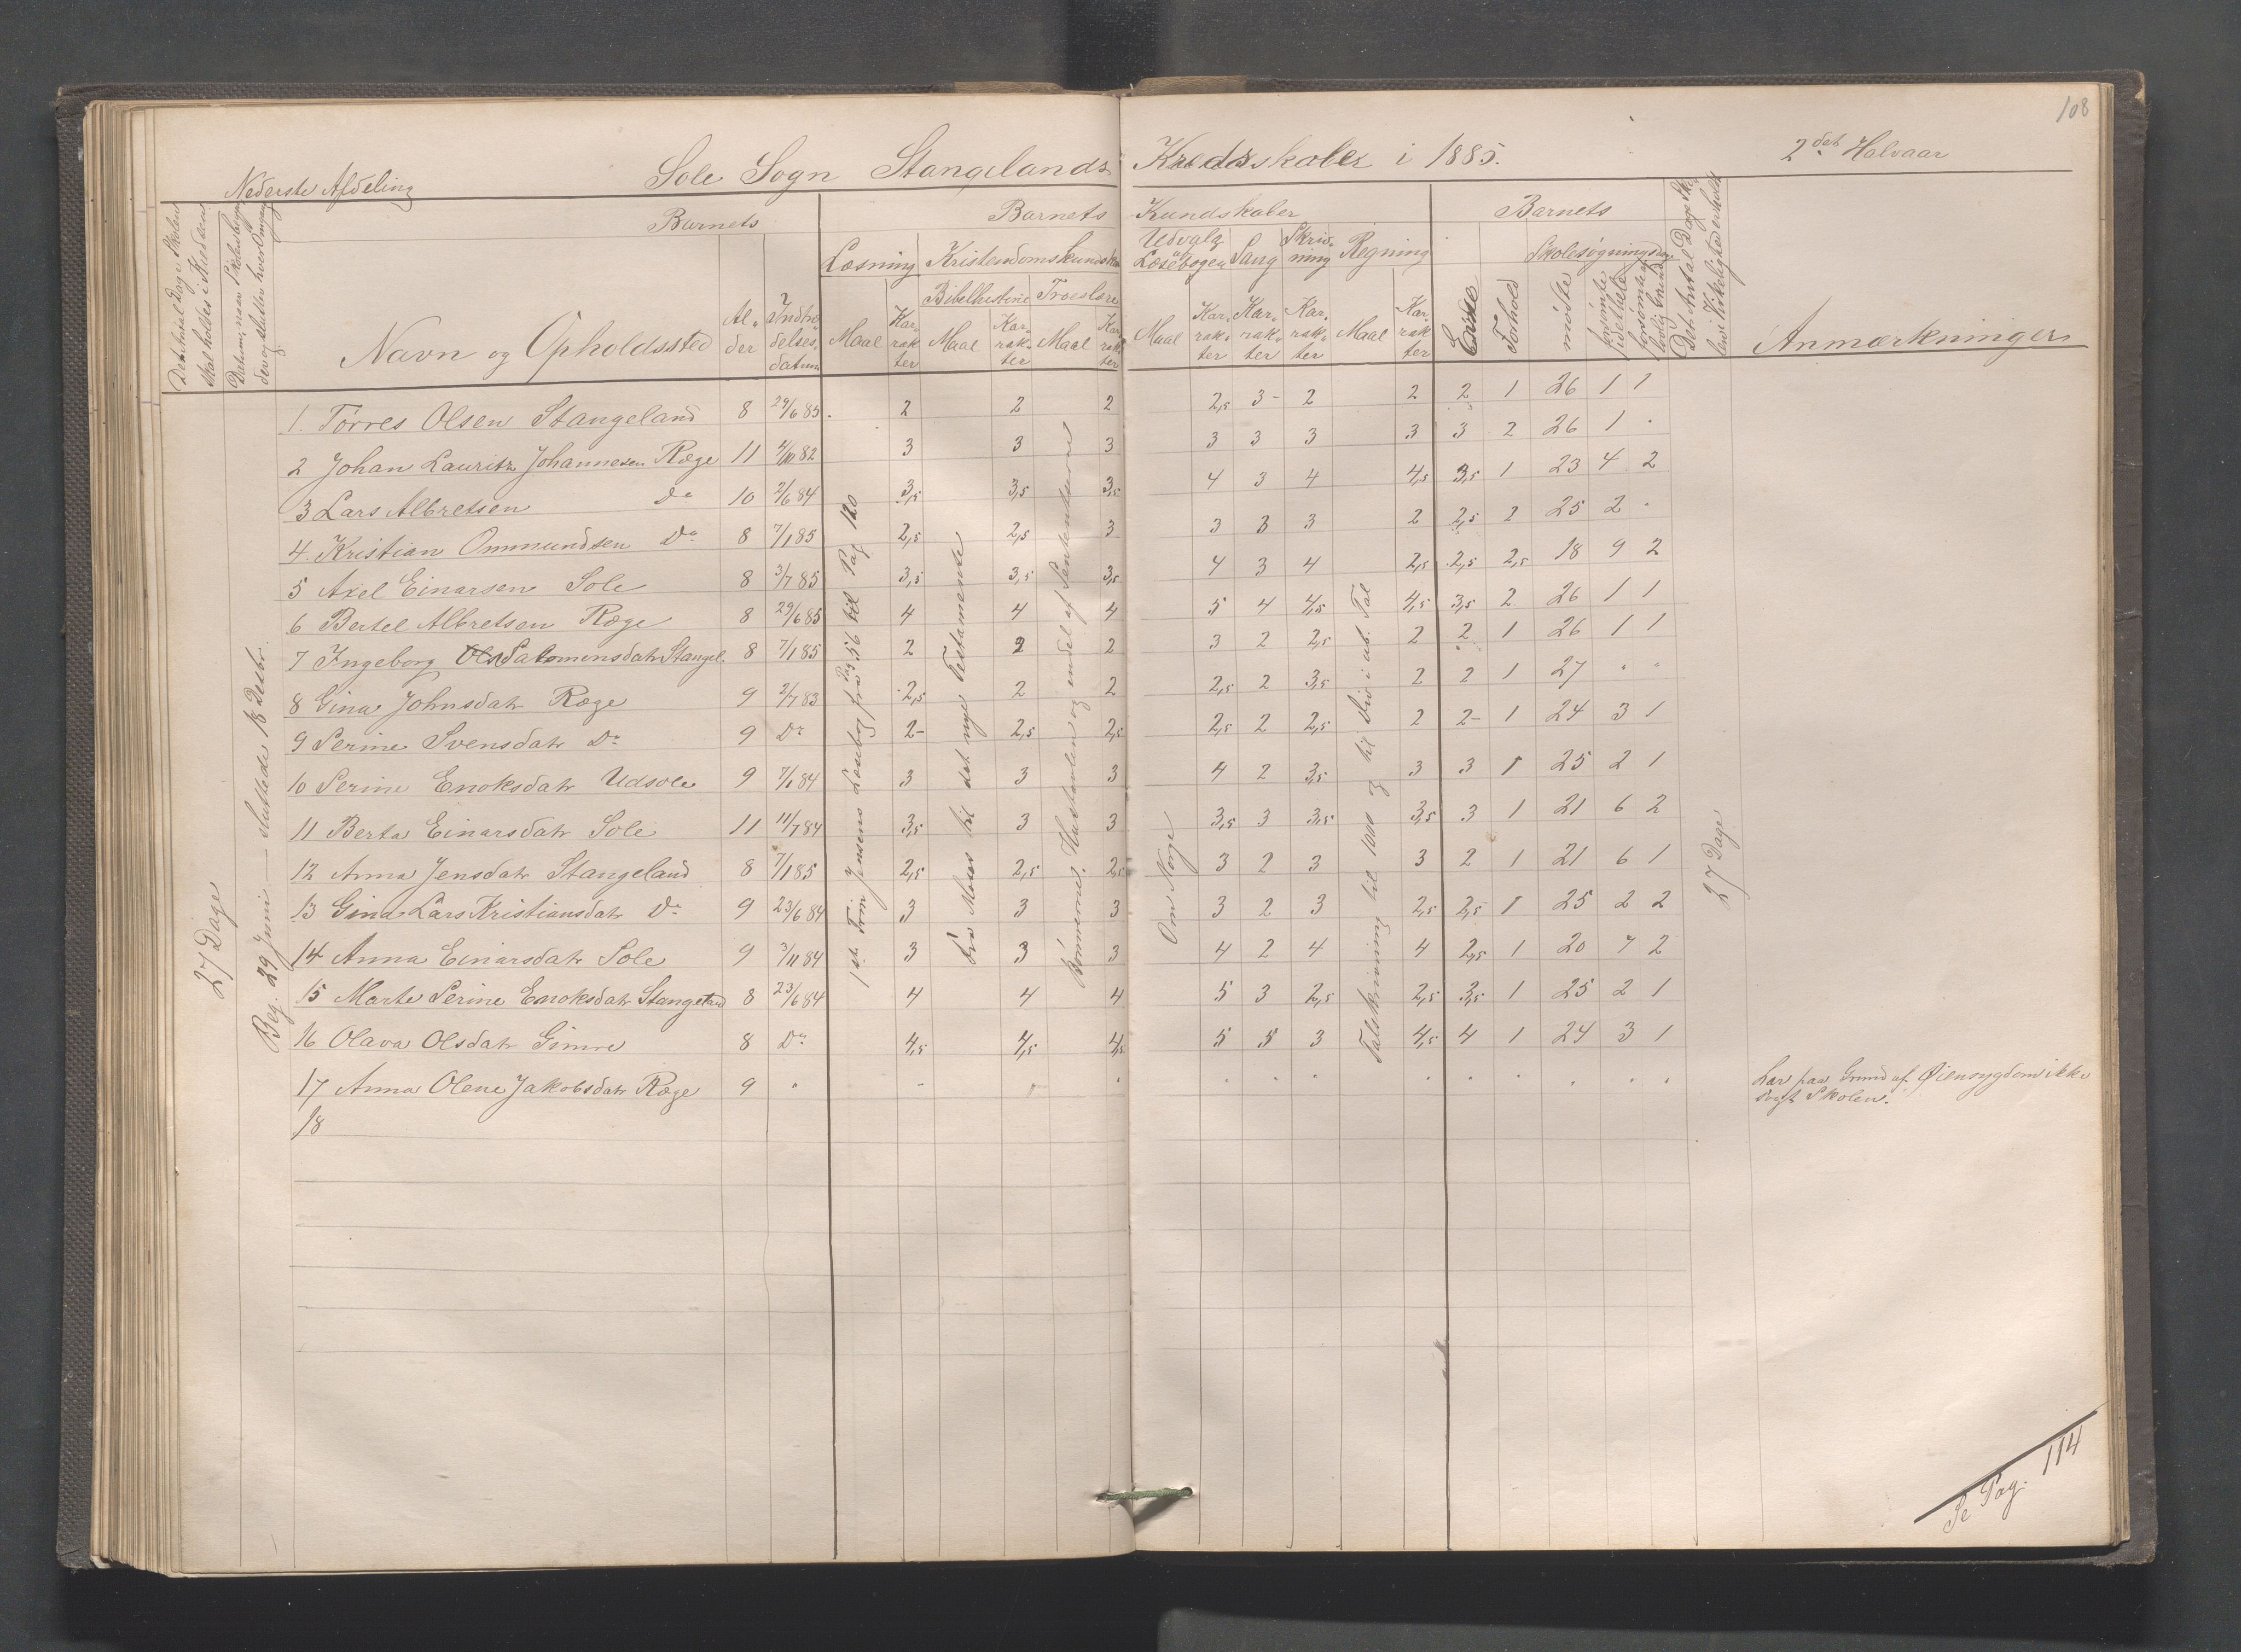 108
Nederste Afdeling
Sole Sogn Stangelands Kredsskoles i 1885.
2det Halvaar
Det Antal Dage Skolen skal holdes i Kredsen
Datum, naar Skolen begynder og slutter hver Omgang
Barnets
Navn og Opholdssted
Alder
Indtrædelsesdatum
Barnets Kundskaber
Læsning
Maal
Karakter
Kristendomskundskab
Bibelhistorie
Maal
Karakter
Troeslære
Maal
Karakter
Udvalg af Læsebogen
Maal
Karakter
Sang
Karakter
Skrivning
Karakter
Regning
Maal
Karakter
Barnets
Evne
Forhold
Skolesøgningsdage
mødte
forsømte i det hele
forsømte af lovlig Grund
Det Antal Dage Skolen i Virkeligheden er holdt
Anmærkninger
27 Dage
Beg. 29 Juni — sluttede 18 Decbr.
1ste Trin Jensens Læsebog fra Pag 56 til Pag 120
fra Moses til det nye Testamente
Børnenes Hustavlen og endel af Sentenserne
Om Norge
Talskrivning til 1000 og til Div i ub. Tal
27 Dage
1. Tørres Olsen Stangeland 8 29/6 85. 2 2 2 2,5 3- 2 2 2 1 26 1 1
2 Johan Lauritz Johannesen Ræge 11 4/10 82 3 3 3 3 3 3 3 3 2 26 1 .
3 Lars Albretsen Do 10 2/6 84 3,5 3,5 3,5 4 3 4 4,5 3,5 1 23 4 2
4. Kristian Ommundsen Do 8 7/1 85 2,5 2,5 3 3 3 3 2 2,5 2 25 2 .
5 Axel Einarsen Sole 8 3/7 85 3,5 3,5 3,5 4 3 4 2,5 2,5 2,5 18 9 2
6 Bertel Albretsen Ræge 8 29/6 85 4 4 4 5 4 4,5 4,5 3,5 2 26 1 1
7 Ingeborg Ols Salomonsdatr Stangel. 8 7/1 85 2 2 2 3 2 2,5 2 2 1 26 1 1
8 Gina Johnsdatr Ræge 9 2/7 83 2,5 2 2 2,5 2 3,5 2 2 1 27 " "
9 Serine Svensdatr Do 9 Do 2- 2,5 2,5 2,5 2 2,5 2 2- 1 24 3 1
10 Serine Enoksdatr Udsole 9 7/1 84 3 3 3 4 2 3,5 3 3 1 25 2 1
11 Berta Einarsdatr Sole 11 11/7 84 3,5 3 3 3,5 3 3,5 3,5 3 1 21 6 2
12 Anna Jensdatr Stangeland 8 7/1 85 2,5 2,5 2,5 3 2 3 3 2 1 21 6 1
13 Gina Lars Kristiansdatr Do 9 23/6 84 3 3 3 3 2 3 2,5 2,5 1 25 2 2
14 Anna Einarsdatr Sole 9 3/11 84 3 3 3 4 2 4 4 2,5 1 20 7 2
15 Marte Serine Enoksdatr Stangeland 8 23/6 84 4 4 4 5 3 2,5 2,5 3,5 1 25 2 1
16 Olava Olsdatr Gimre 8 Do 4,5 4,5 4,5 5 5 3 4,5 4 1 24 3 1
17 Anna Olene Jakobsdatr Ræge 9 " Har paa Grund af Øiensygdom ikke
søgt Skolen.
18
Se Pag. 114